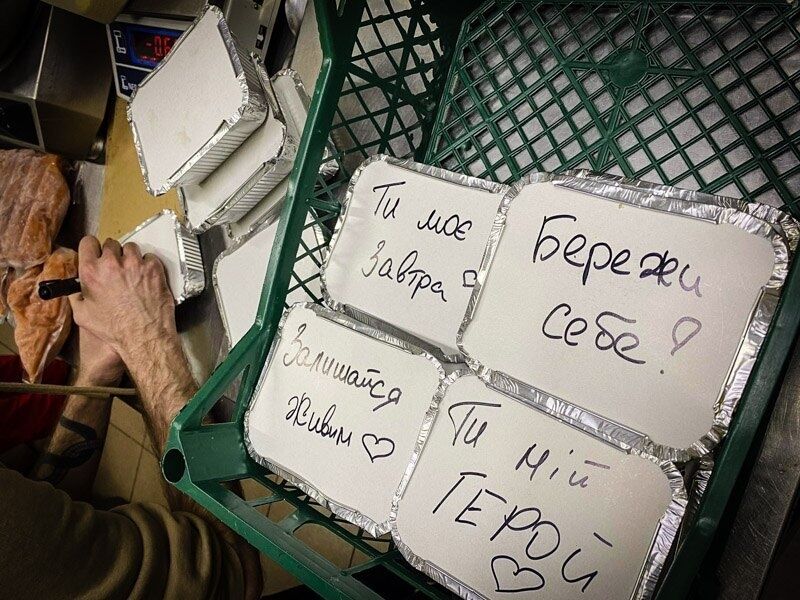 Ти моє
Завтра
Бережи
себе!
Залишайся
живим ♡
Ти мій
ГЕРОЙ
♡